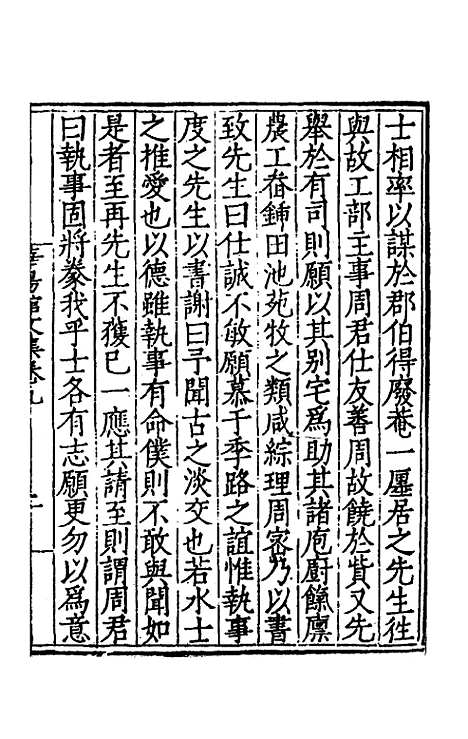 士相率以謀於郡伯得廢菴一廛居之先生徃
與故工部主事周君仕友善周故饒於貲又先
舉於有司則願以其别宅為助其諸庖廚餼廩
農工畚鍤田池苑牧之類咸綜理周密乃以書
致先生曰仕誠不敏願慕于季路之誼惟執事
度之先生以書謝曰予聞古之淡交也若水士
之推愛也以德雖執事有命僕則不敢與聞如
是者至再先生不獲已一應其請至則謂周君
曰執事固將豢我乎士各有志願更勿以為意
文集卷九